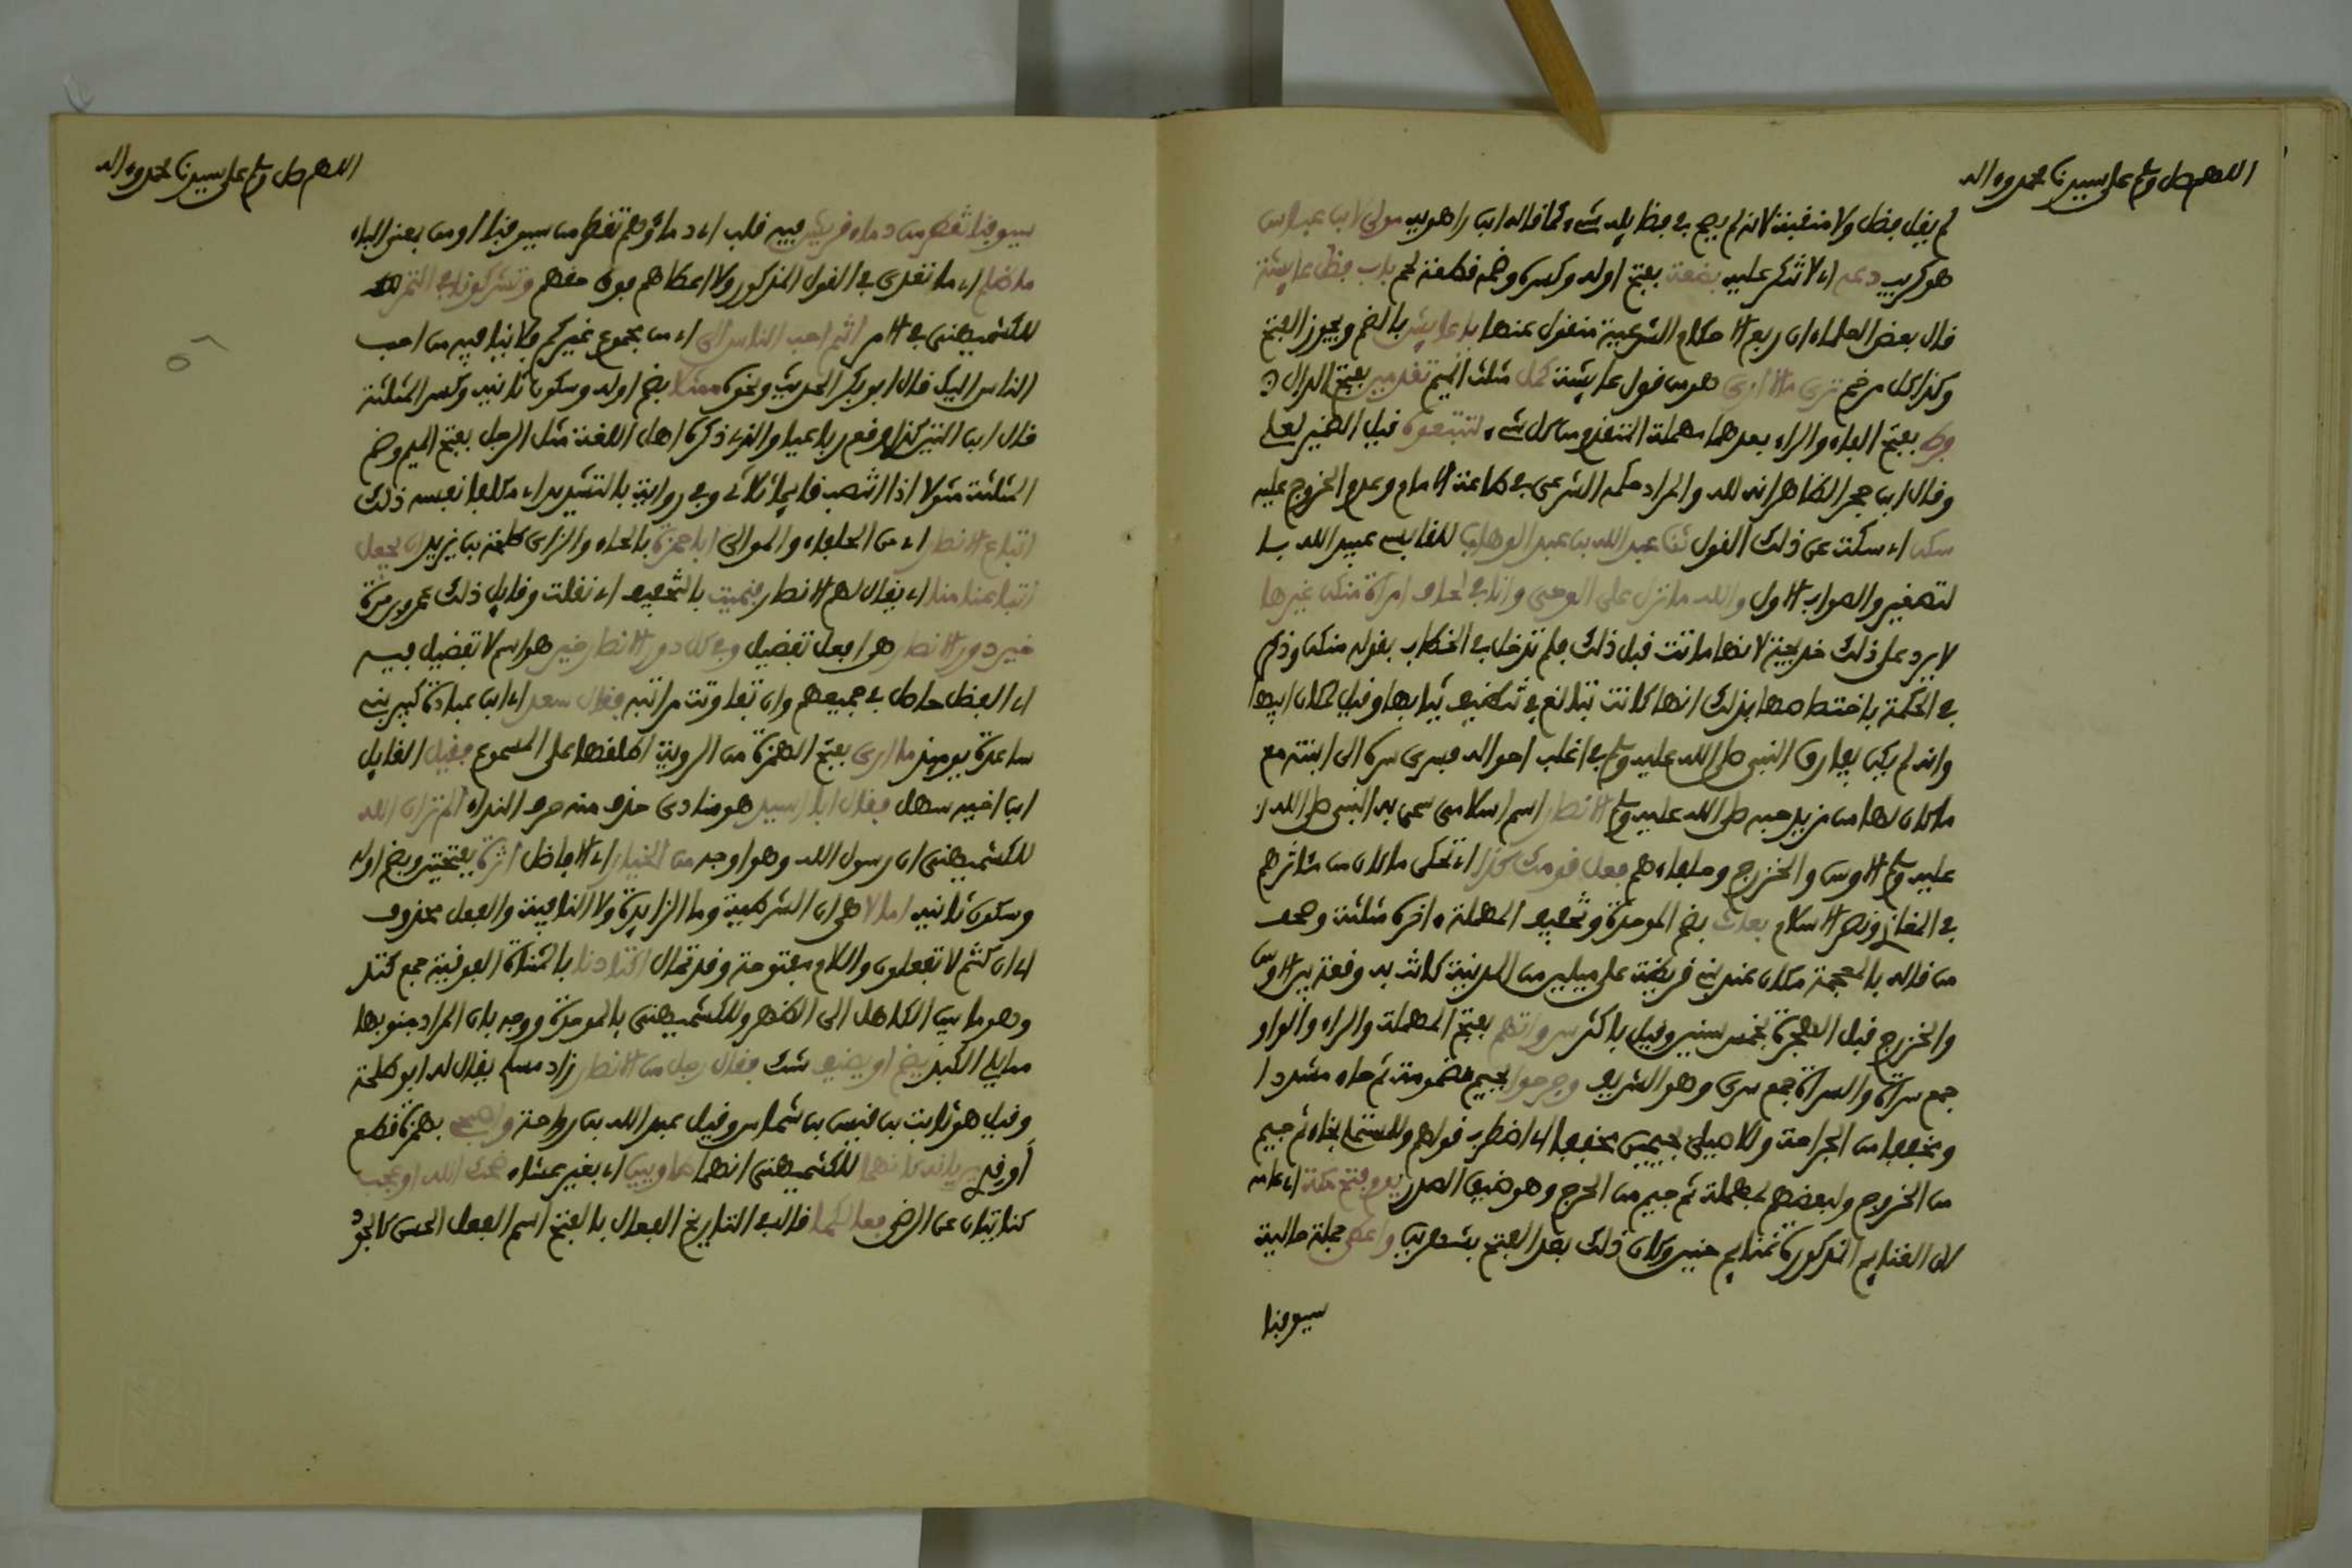 اللهم صل وسلم على سيدنا محمد وءاله
لم يقل فضل ولا منقبة لانه لم يصح في فضايله شيء كما قاله ابن راهويه مولى ابن عباس
هو كريب دعه اي لا تنكر عليه بضعة بفتح اوله وكسره وضمه قطعة لحم باب فضل عايشة
قال بعض العلماء ان ربع الاحكام الشرعية منقول عنها يا عايش بالضم ويجوز الفتح
وكذا كل مرخم ترى ما لا ارى هو من قول عايشة كمل مثلث الميم تقدمين بفتح الدال
فرط بفتح الفاء والراء بعدهما مهملة المتقدم من كل شيء لتتبعوه قيل الضمير لعلي
وقال ابن حجر الظاهر انه لله والمراد حكمه الشرعي في طاعة الامام وعدم الخروج عليه
سكن اي سكت عن ذلك القول ثنا عبد الله بن عبد الوهاب للقابسي عبيد الله با
لتصغير والصواب الاول والله ما نزل علي الوحي وانا في لحاف امراة منكن غيرها
لا يرد على ذلك خديجة لانها ماتت قبل ذلك فلم تدخل في الخطاب بقوله منكن وذكر
في الحكمة باختصاصها بذلك انها كانت تبالغ في تنظيف ثيابها وقيل لمكان ابيها
وانه لم يكن يفارق النبي صلى الله عليه وسلم في اغلب احواله فسرى سره الى ابنته مع
ما كان لها من مزيد حبه صلى الله عليه وسلم الانصار اسم اسلامي سمى به النبي صلى الله
عليه وسلم الاوس والخزرج وحلفاءهم فعل قومك كذا اي تحكى ما كان من مئاثرهم
في المغازي ونصر الاسلام بعاث بضم الموحدة وتخفيف المهملة ءاخره مثلثة وصحف
من قاله بالمعجمة مكان عند بني قريظة على ميلين من المدينة كانت به وقعة بين الاوس
والخزرج قبل الهجرة بخمس سنين وقيل باكثر سرواتهم بفتح المهملة والراء والواو
جمع سراة والسراة جمع سري وهو الشريف وجرحوا بجيم مضمومة ثم حاء مشددا
ومخففا من الجراحة وللاصيلي بجيمين مخففا اي اضطرب قولهم وللمستملي بخاء ثم جيم
من الخروج ولبعضهم بمهملة ثم جيم من الحرج وهو ضيق الصدر يوم فتح مكة اي عامه
لان الغنايم المذكورة غنايم حنين وكان ذلك بعد الفتح بشهرين واعطى جملة حالية
سيوفنا
اللهم صل وسلم على سيدنا محمد وءاله
سيوفنا تقطر من دماء قريش فيه قلب اي دماؤهم تقطر من سيوفنا او من بمعنى الباء
ما فعلم اي ما تعدى في القول المذكور ولا اعطاهم فوق حقهم وتشركونا في التمر
للكشميهني في الامر انتم احب الناس الي اي من مجموع غيركم فلا ينافيه من احب
الناس اليك قال ابو بكر الحديث ونحوه ممثلا بضم اوله وسكون ثانيه وكسر المثلثة
قال ابن التين كذا وقع رباعيا والذي ذكره اهل اللغة مثل الرجل بفتح الميم وضم
المثلثة مثولا اذا انتصب قايما ثلاثي وفي رواية بالتشديد اي مكلفا نفسه ذلك
اتباع الانصار اي من الحلفاء والموالي ابا حمزة بالحاء والزاي طلحة بن يزيد ان يجعل
اتباعنا منا اي يقال لهم الانصار فنميت بالتخفيف اي نقلت وقايل ذلك عمرو بن مرة
خير دور الانصار هو افعل تفضيل وفي كل دور الانصار خير هو اسم لا تفضيل فيه
اي الفضل حاصل في جميعهم وان تفاوتت مراتبه فقال سعد اي ابن عبادة كبير بني
ساعدة يومئذ ما ارى بفتح الهمزة من الروية اطلقها على المسموع فقيل القايل
ابن اخيه سهل فقال ابا اسيد هو منادى حذف منه حرف النداء الم تر ان الله
للكشميهني ان رسول الله وهو اوجه من الخيار اي الافاضل اثرة بفتحتين وبضم اوله
وسكون ثانيه اما لا هي ان الشرطية وما الزايدة ولا النافية والفعل محذوف
اي ان كنتم لا تفعلون واللام مفتوحة وقد تمال اكتادنا بالمثناة الفوقية جمع كتد
وهو ما بين الكاهل الى الظهر وللكشميهني بالموحدة ووجه بان المراد جنوبها
مما يلي الكبد يضم او يضيف شك فقال رجل من الانصار زاد مسلم يقال له ابو طلحة
وقيل هو ثابت بن قيس بن شماس وقيل عبد الله بن رواحة واصبحي بهمزة قطع
أوقدي يريانه كانهما للكشميهني انهما طاويين اي بغير عشاء ضحك الله او عجب
كنايتان عن الرضى فعالكما قال في التاريخ الفعال بالفتح اسم الفعل الحسن كالجود